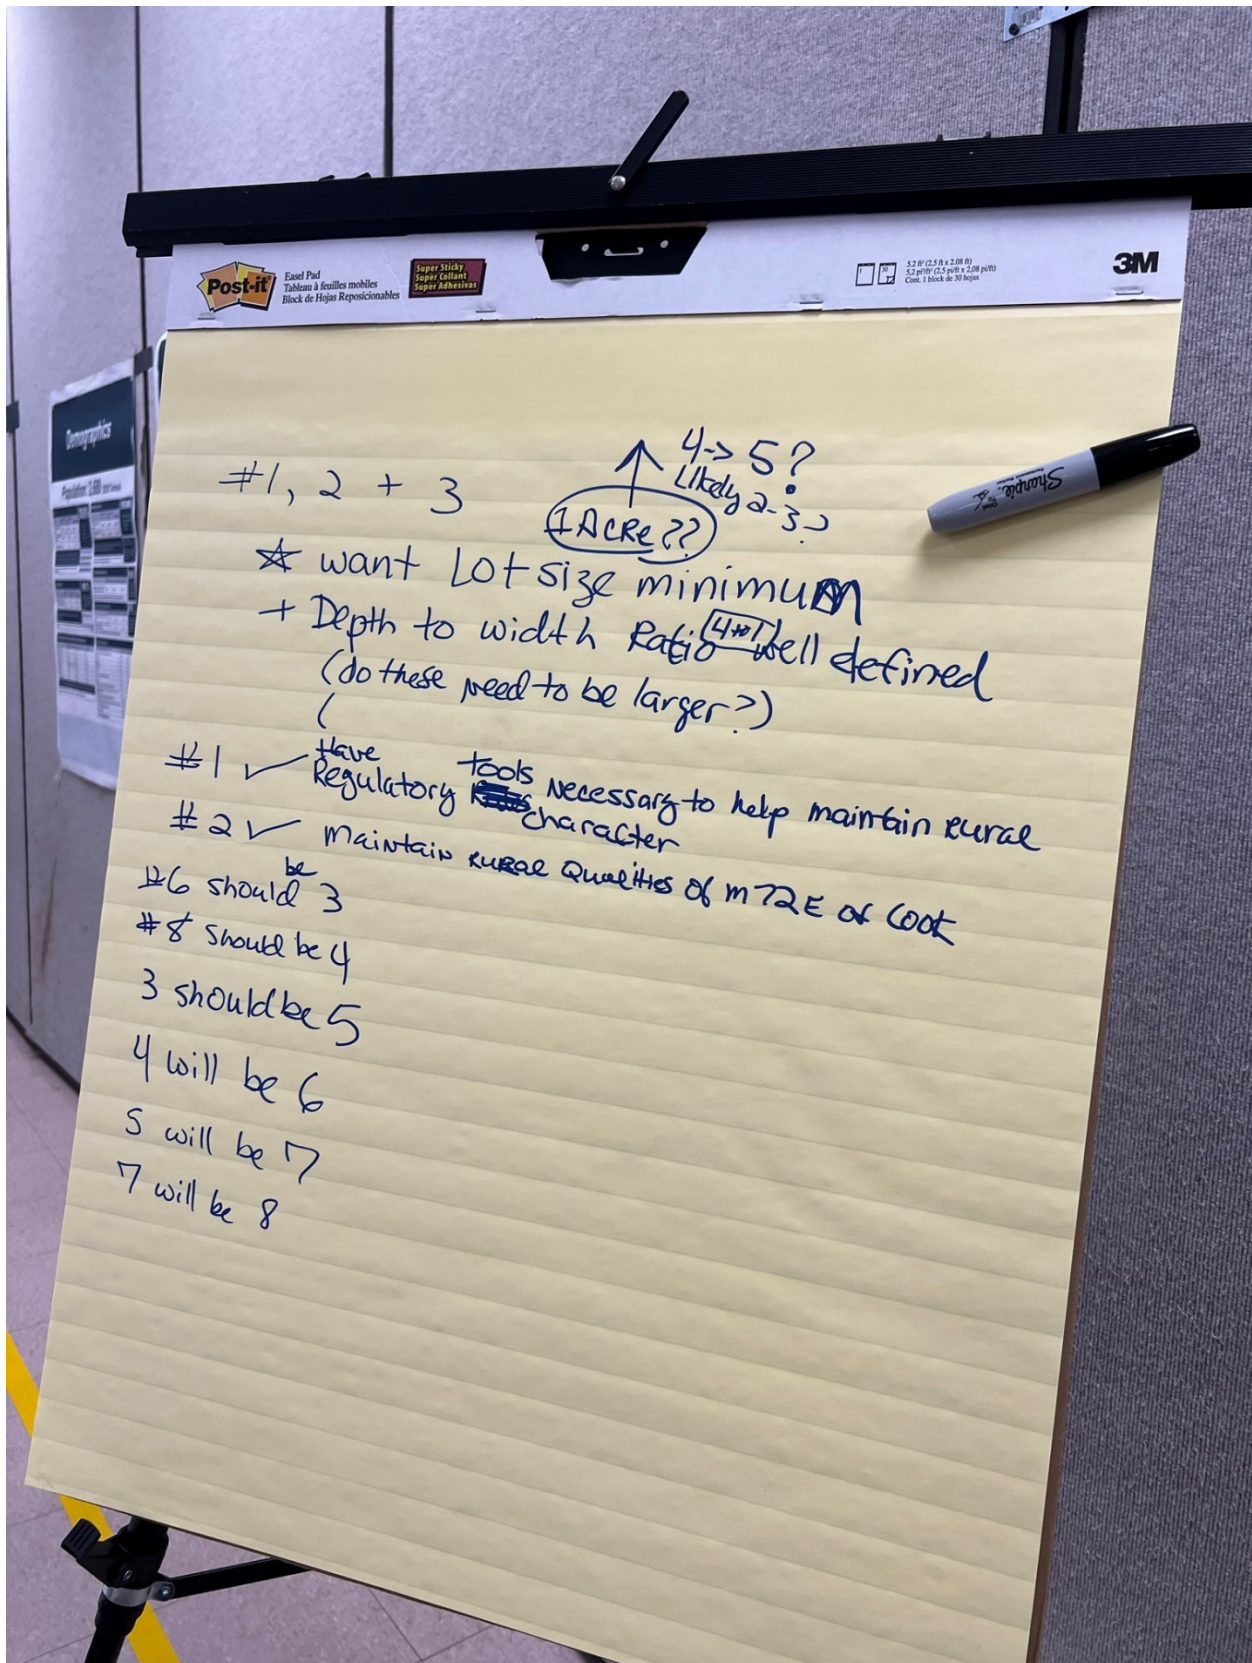 Post-it
Easel Pad
Tableau à feuilles mobiles
Block de Hojas Reposicionables
Super Sticky
Super Collant
Super Adhesivas
5.2 ft² (2.5 ft x 2.08 ft)
5,2 pi²/ft² (2,5 pi/ft x 2,08 pi/ft)
Cont. 1 block de 30 hojas
3M
Demographics
Sharpie
#1, 2 + 3
4-> 5?
Likely 2-3?
1 Acre??
☆ want Lot size minimum
+ Depth to width Ratio 4 to 1 well defined
(do these need to be larger?)
(
#1 ✓ Have Regulatory tools necessary to help maintain rural
character
#2 ✓ maintain rural Qualities of M72E of Cook
#6 should be 3
#8 should be 4
3 should be 5
4 will be 6
5 will be 7
7 will be 8